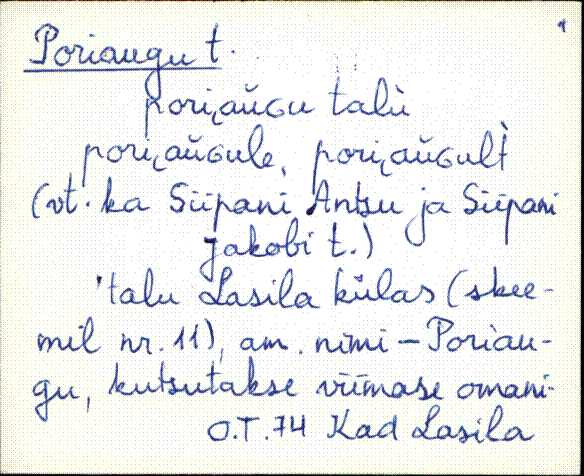 Poriaugu t.
pori̯au̬ɢu talù
pori̯au̬ɢule, pori̯au̬ɢult̀
(vt. ka Siipani Antsu ja Siipani
Jakobi t.)
'talu Lasila külas (skee-
mil nr. 11), am. nimi – Poriau-
gu, kutsutakse viimase omani-
O.T. 74 Kad Lasila